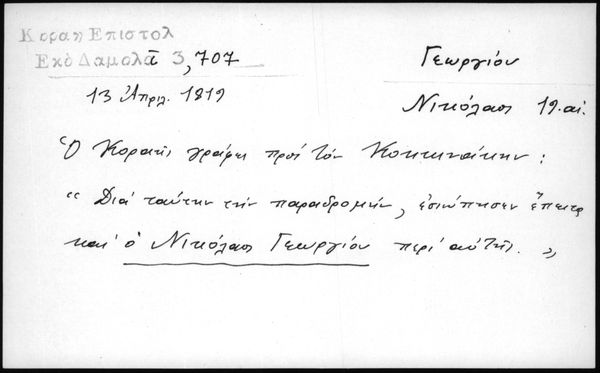 Κοραη Επιστολ
Εκδ Δαμαλᾶ 3,707
Γεωργίου
13 Ἀπριλ. 1819
Νικόλαος 19. αἰ.
Ὁ Κοραῆς γράφει πρὸς τὸν Κοκκινάκην:
“ Διὰ ταύτην τὴν παραδρομήν, ἐσιώπησεν ἔπειτα
καὶ ὁ Νικόλαος Γεωργίου περὶ αὐτῆς. „